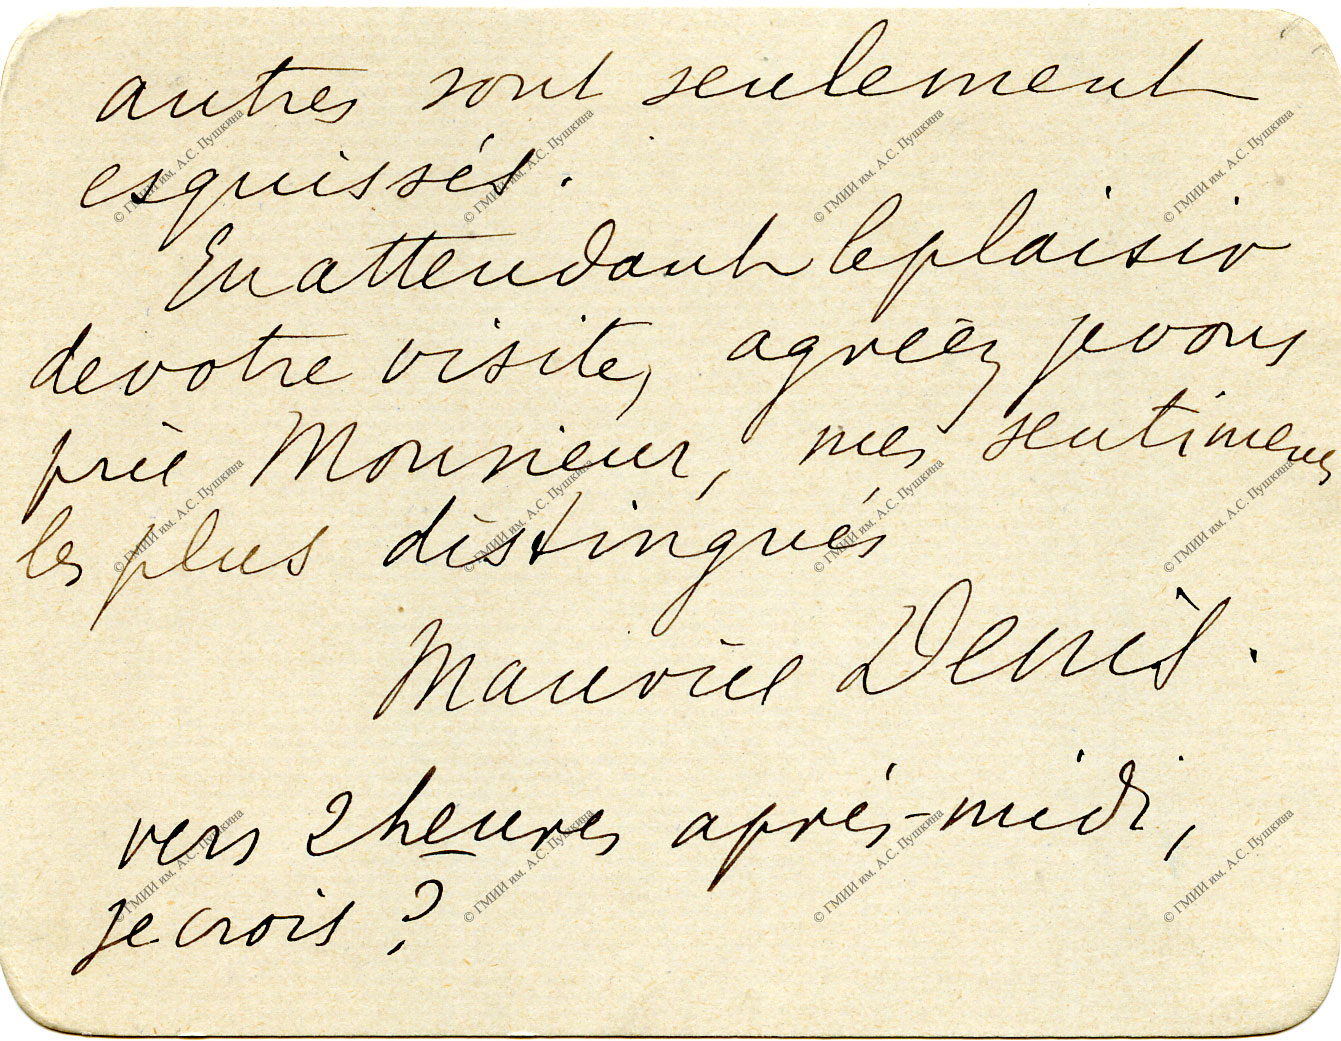 autres sont seulement
esquissés.
En attendant le plaisir
de votre visite, agréez je vous
prie Monsieur, mes sentiments
les plus distingués
Maurice Denis.
vers 2 heures après-midi,
je crois ?
© ГМИИ им. А.С. Пушкина
© ГМИИ им. А.С. Пушкина
© ГМИИ им. А.С. Пушкина
© ГМИИ им. А.С. Пушкина
© ГМИИ им. А.С. Пушкина
© ГМИИ им. А.С. Пушкина
© ГМИИ им. А.С. Пушкина
© ГМИИ им. А.С. Пушкина
© ГМИИ им. А.С. Пушкина
© ГМИИ им. А.С. Пушкина
© ГМИИ им. А.С. Пушкина
© ГМИИ им. А.С. Пушкина